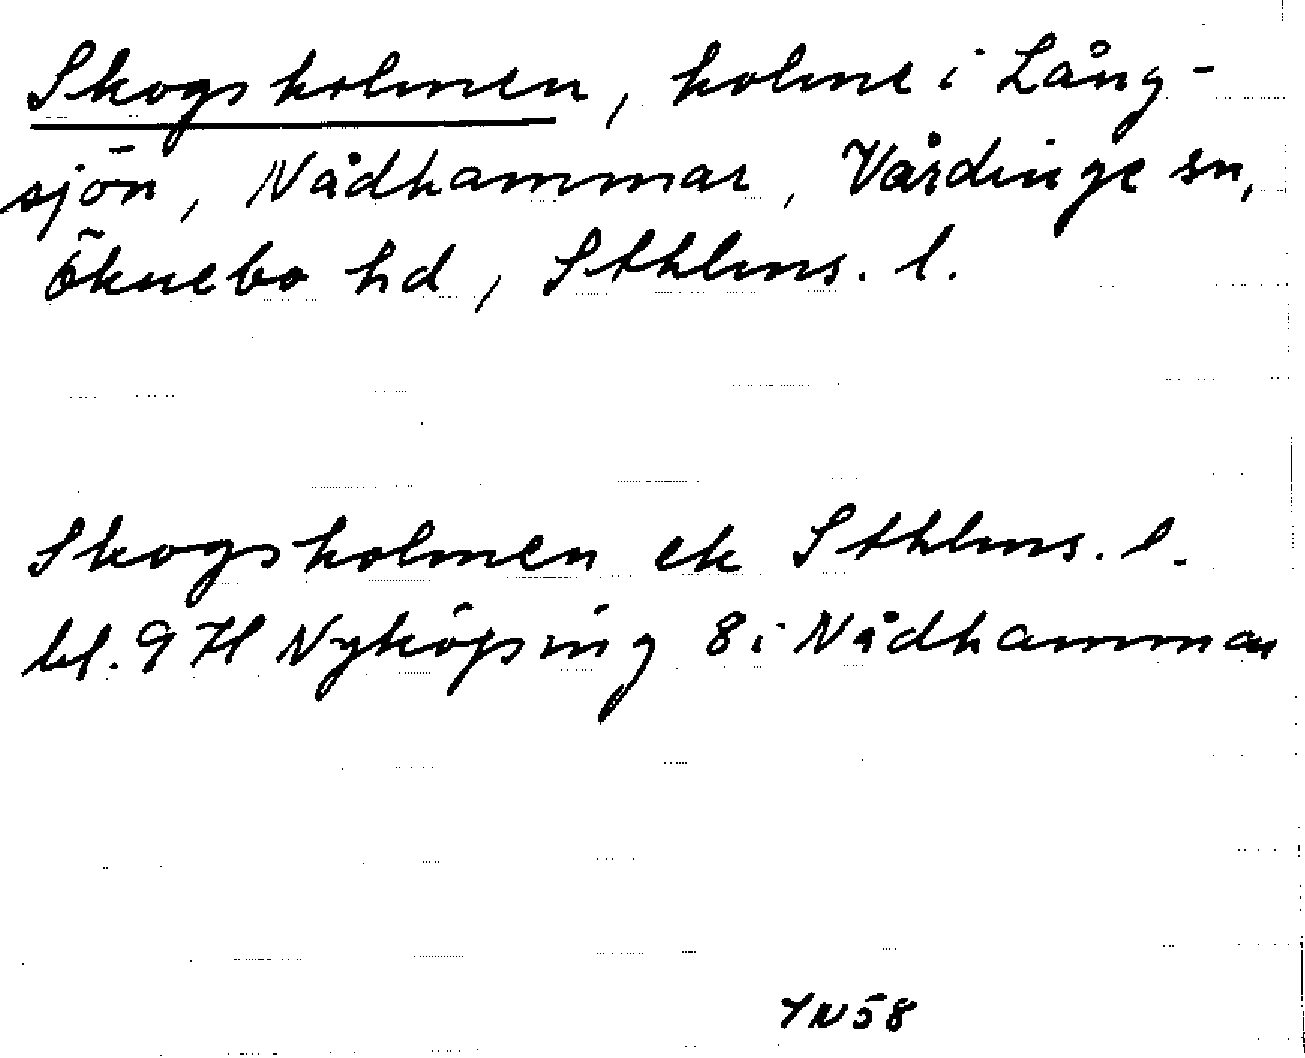 Skogsholmen, holme i Lång-
sjön, Nådhammar, Vårdinge sn,
Öknebo hd, Sthlms. l.
Skogsholmen ek Sthlms. l.
bl. 9 H Nyköping 8 i Nådhammar
YN58